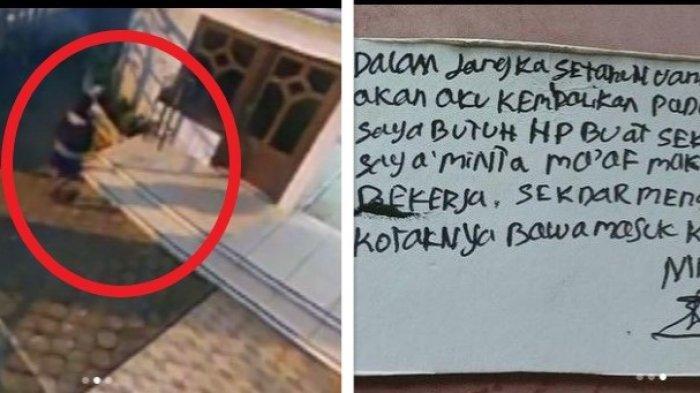 DALAM JANGKA SETAHUN UAN
AKAN AKU KEMBALIKAN PAD
SAYA BUTUH HP BUAT SEK
SAYA MINTA MA'AF MAK
BEKERJA. SEKDAR MENG
KOTAKNYA BAWA MASUK K